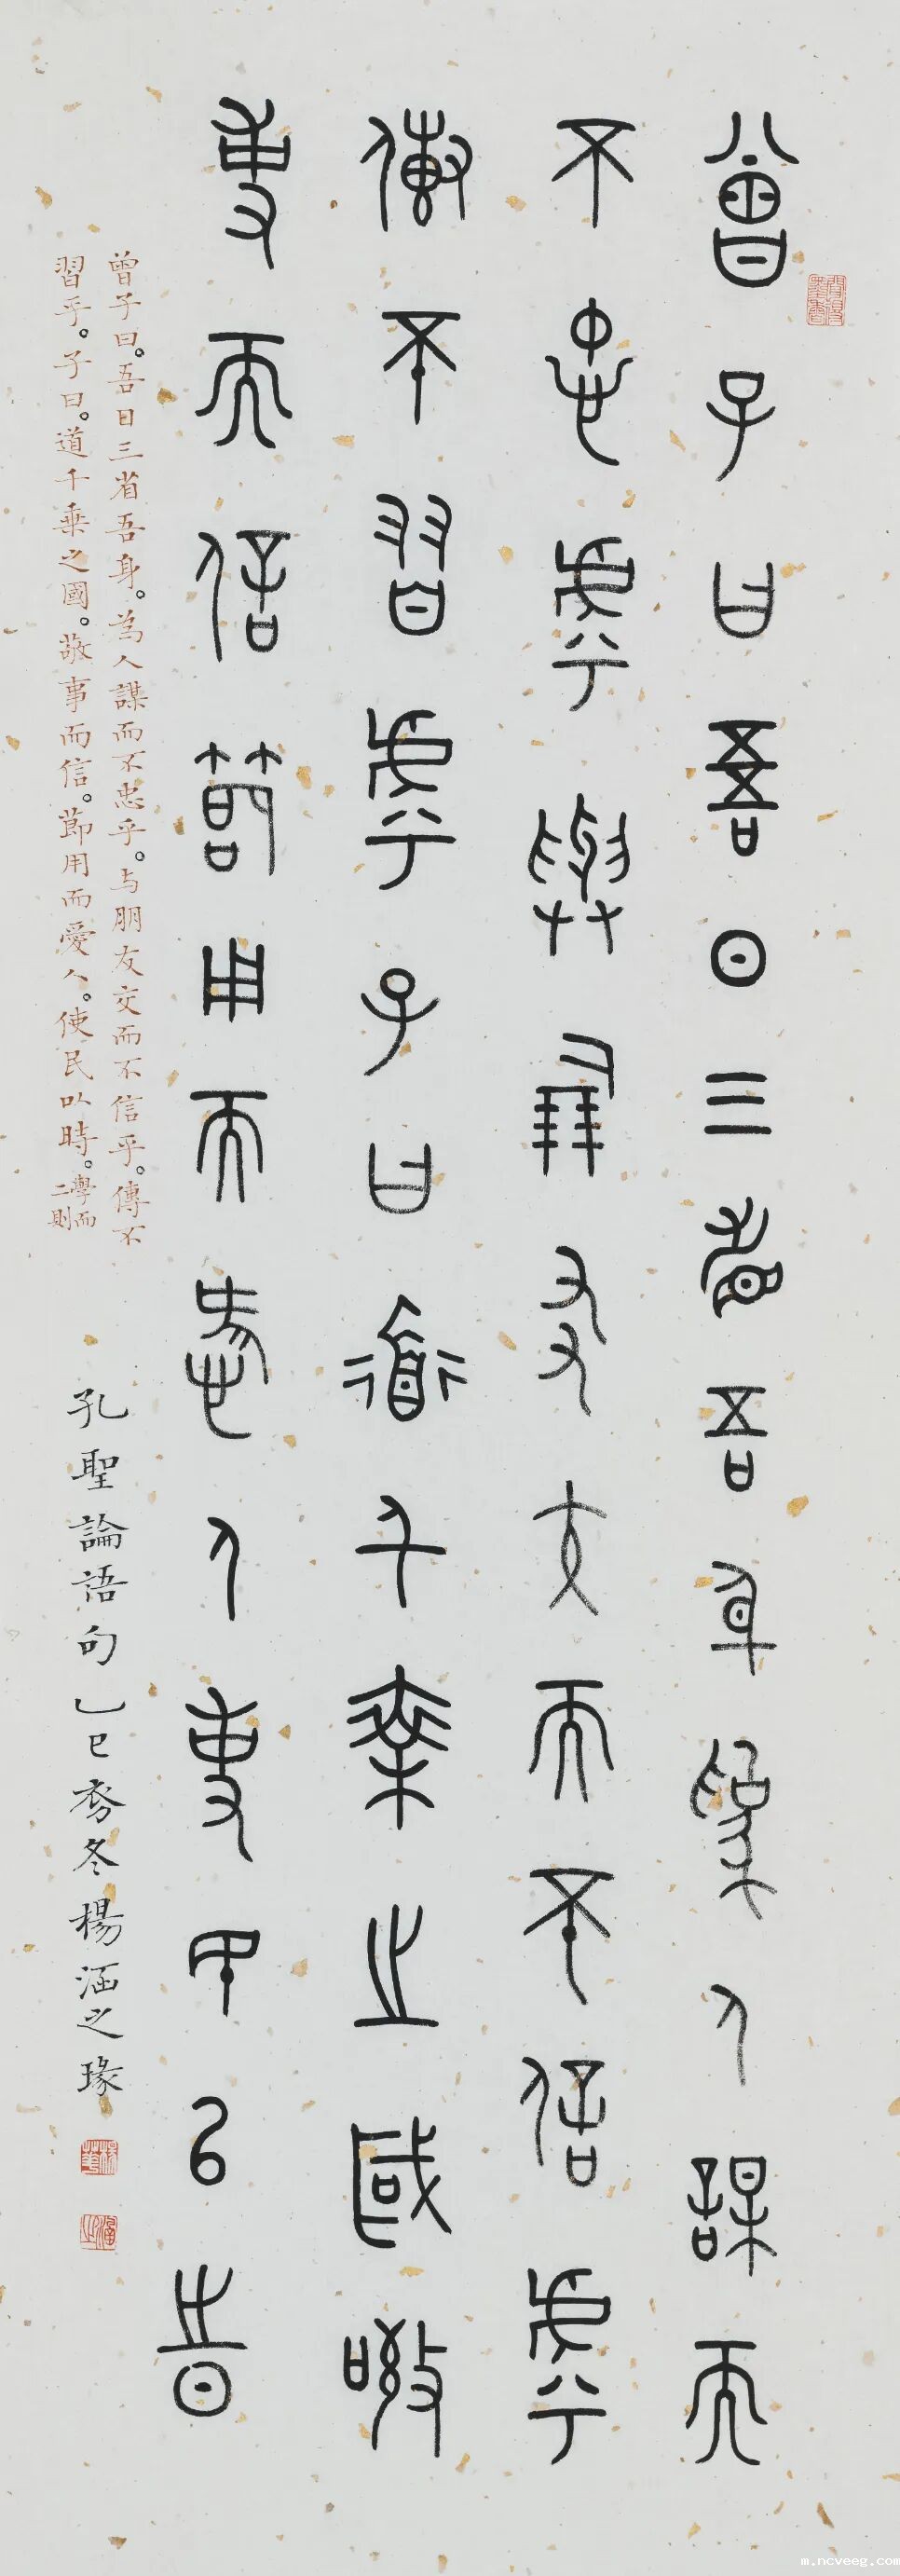 曾子曰吾日三省吾身為人謀而
不忠乎與朋友交而不信乎
傳不習乎子曰道千乘之國敬
事而信節用而愛人使民以時
曾子曰。吾日三省吾身。為人謀而不忠乎。与朋友交而不信乎。傳不
習乎。子曰。道千乘之國。敬事而信。節用而愛人。使民以時。學而二則
孔聖論語句乙巳秀冬楊涵之瑑
m.ncveeg.com